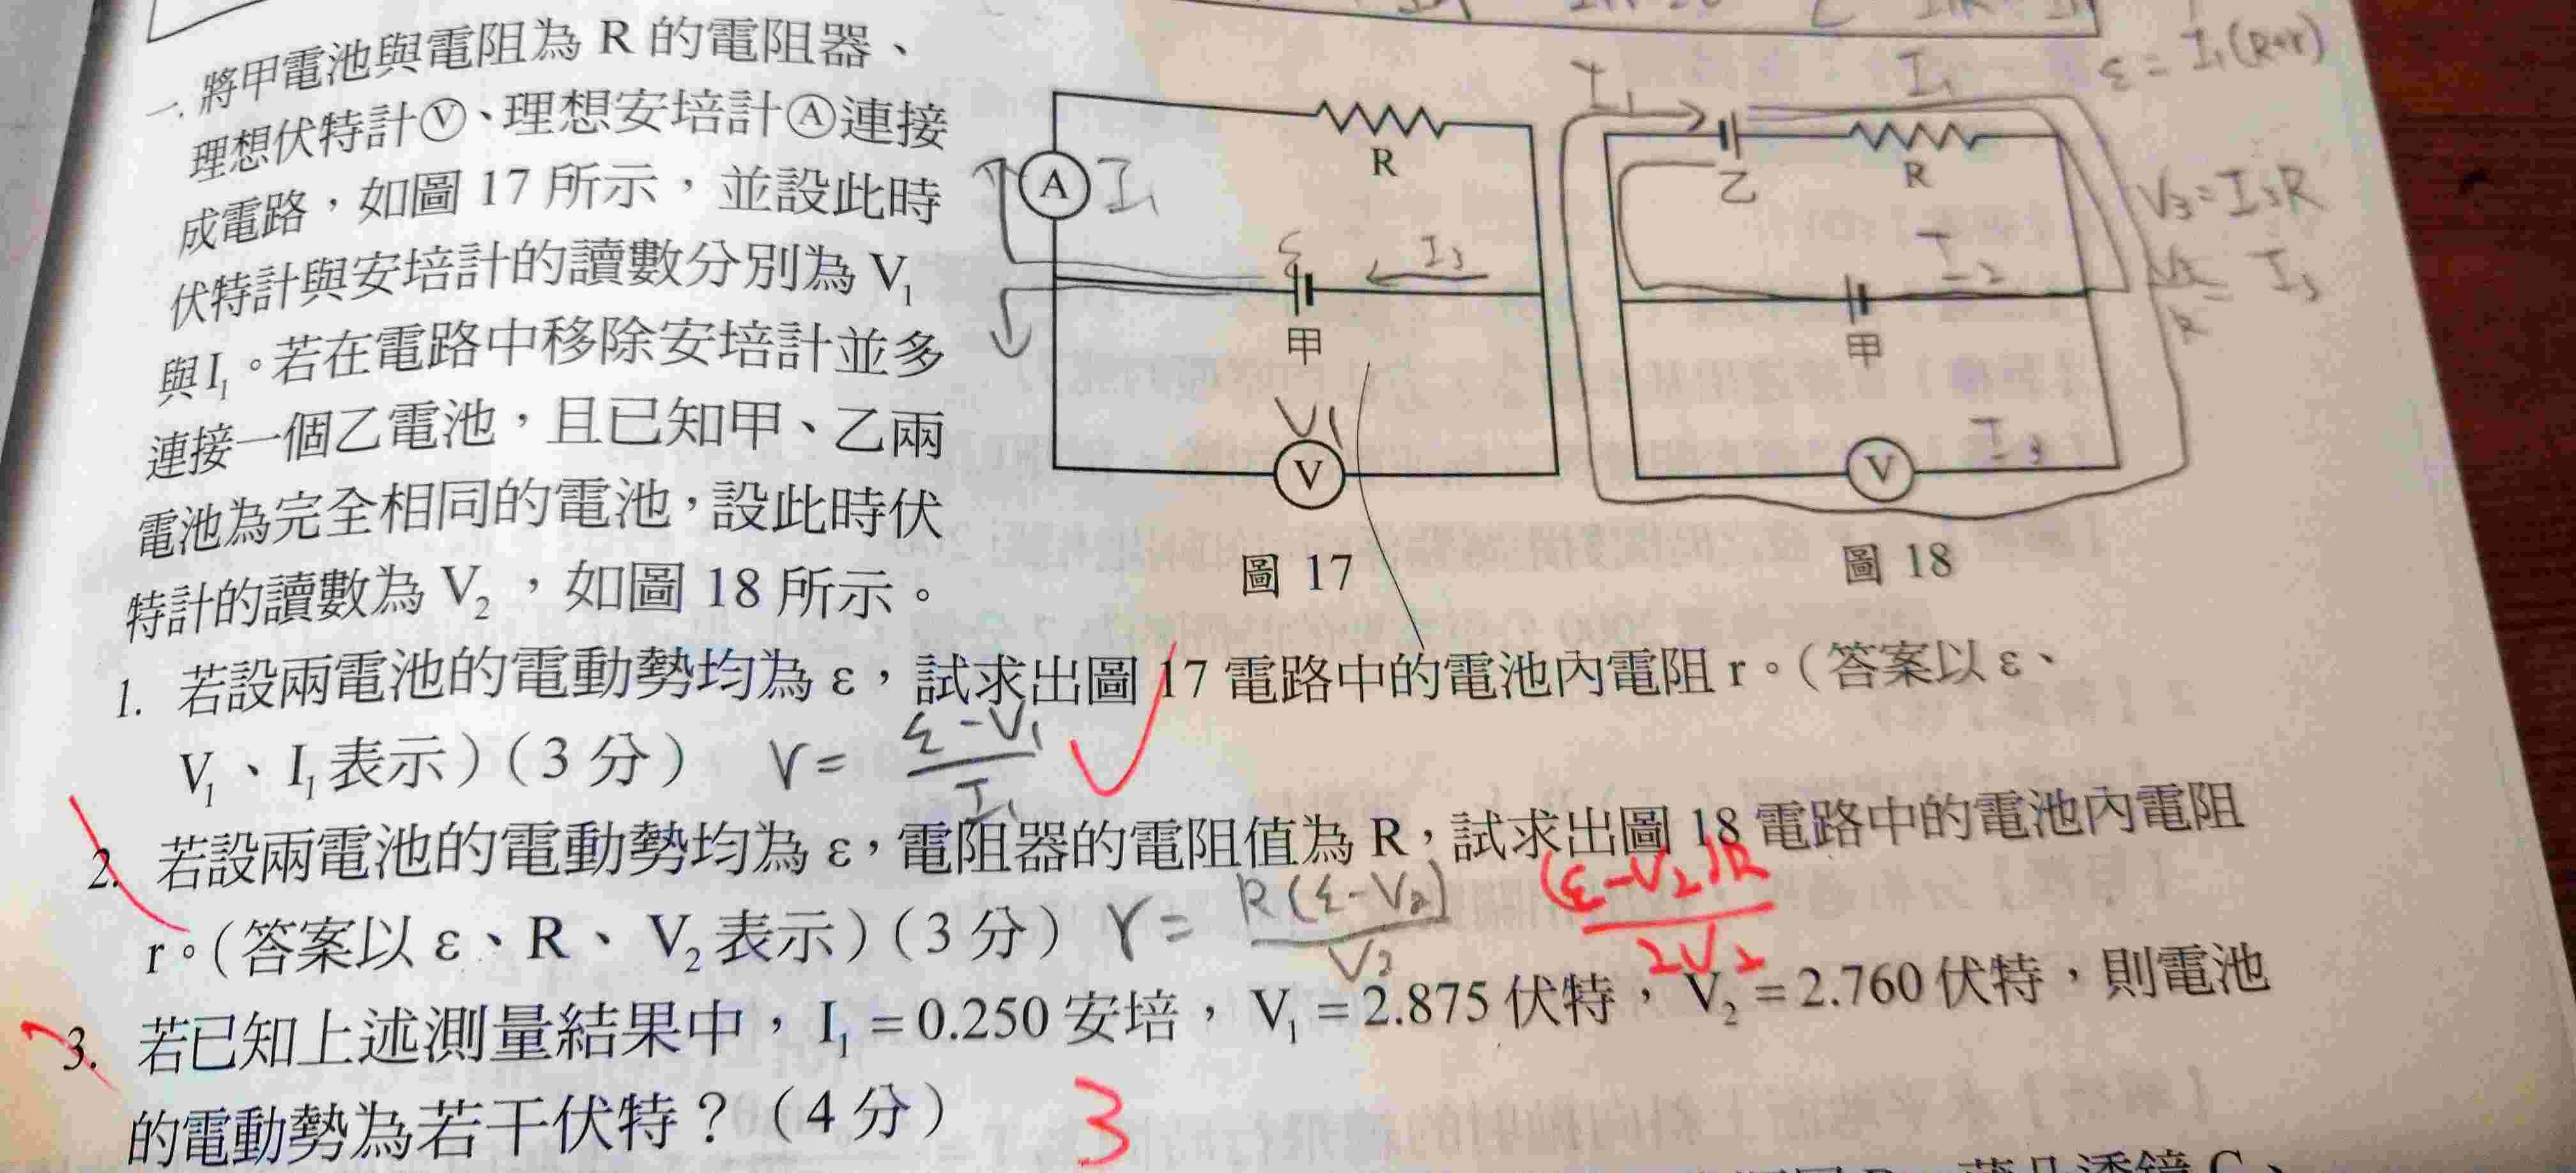 ε = I₁(R+r)
一. 將甲電池與電阻為 R 的電阻器、
理想伏特計Ⓥ、理想安培計Ⓐ連接
成電路，如圖 17 所示，並設此時
伏特計與安培計的讀數分別為 V₁
與I₁。若在電路中移除安培計並多
連接一個乙電池，且已知甲、乙兩
電池為完全相同的電池，設此時伏
特計的讀數為 V₂，如圖 18 所示。
R
A I₁
ε I₃
甲
V₁
V
圖 17
I₁ I₁
乙 R
I₂
甲
I₃
V
圖 18
V₃=I₃R
= I₃
R
1. 若設兩電池的電動勢均為 ε，試求出圖 17 電路中的電池內電阻 r。（答案以 ε、
V₁、I₁ 表示）（3 分） r= ε-V₁
I₁
2. 若設兩電池的電動勢均為 ε，電阻器的電阻值為 R，試求出圖 18 電路中的電池內電阻
r。（答案以 ε、R、V₂ 表示）（3 分） r= R(ε-V₂)
V₂
(ε-V₂)R
2V₂
3. 若已知上述測量結果中，I₁ = 0.250 安培，V₁ = 2.875 伏特，V₂ = 2.760 伏特，則電池
的電動勢為若干伏特？（4 分） 3